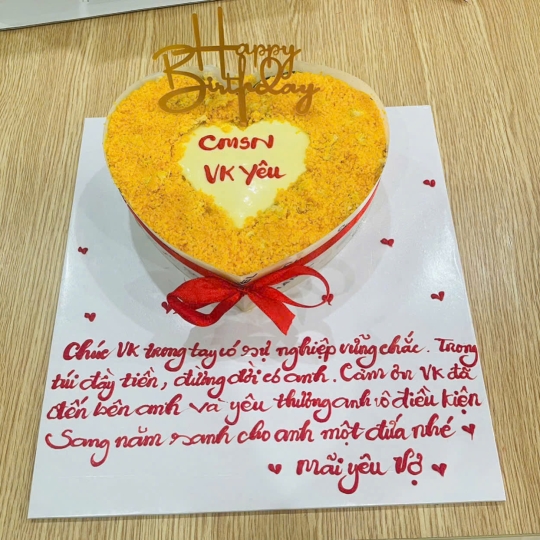 Happy
Birthday
CMSN
VK Yêu
Chúc VK trong tay có sự nghiệp vững chắc. Trong
túi đầy tiền, đường đời có anh. Cảm ơn VK đã
đến bên anh và yêu thương anh vô điều kiện
Sang năm sanh cho anh một đứa nhé
mãi yêu Vợ